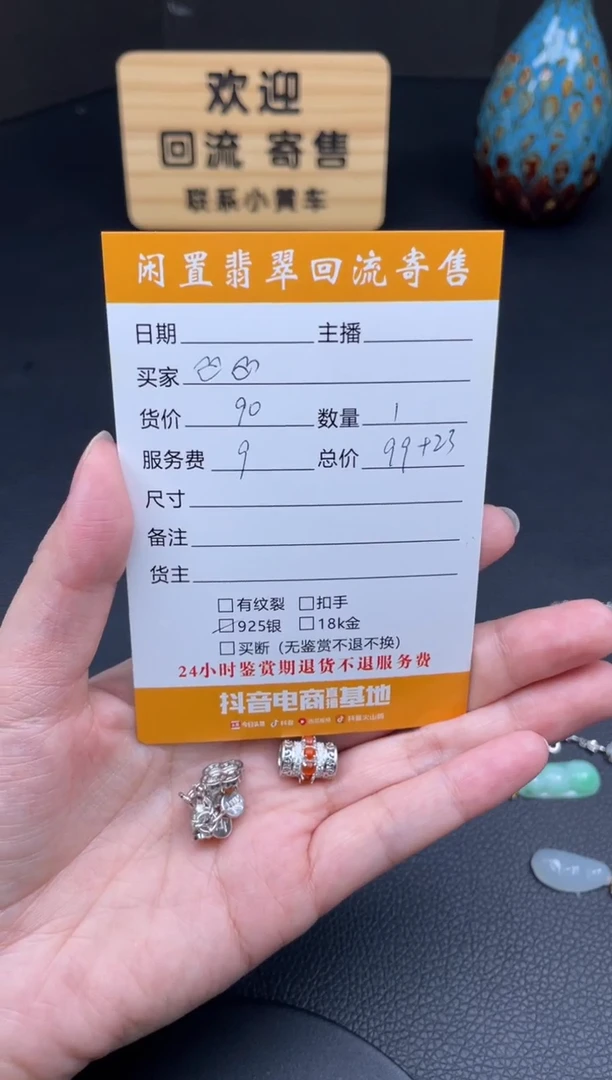 欢迎
回流 寄售
联系小黄车
闲置翡翠回流寄售
日期 主播
买家
货价 90 数量 1
服务费 9 总价 99+23
尺寸
备注
货主
□有纹裂 □扣手
☑925银 □18k金
□买断（无鉴赏不退不换）
24小时鉴赏期退货不退服务费
抖音电商直播基地
今日头条 抖音 西瓜视频 抖音火山版